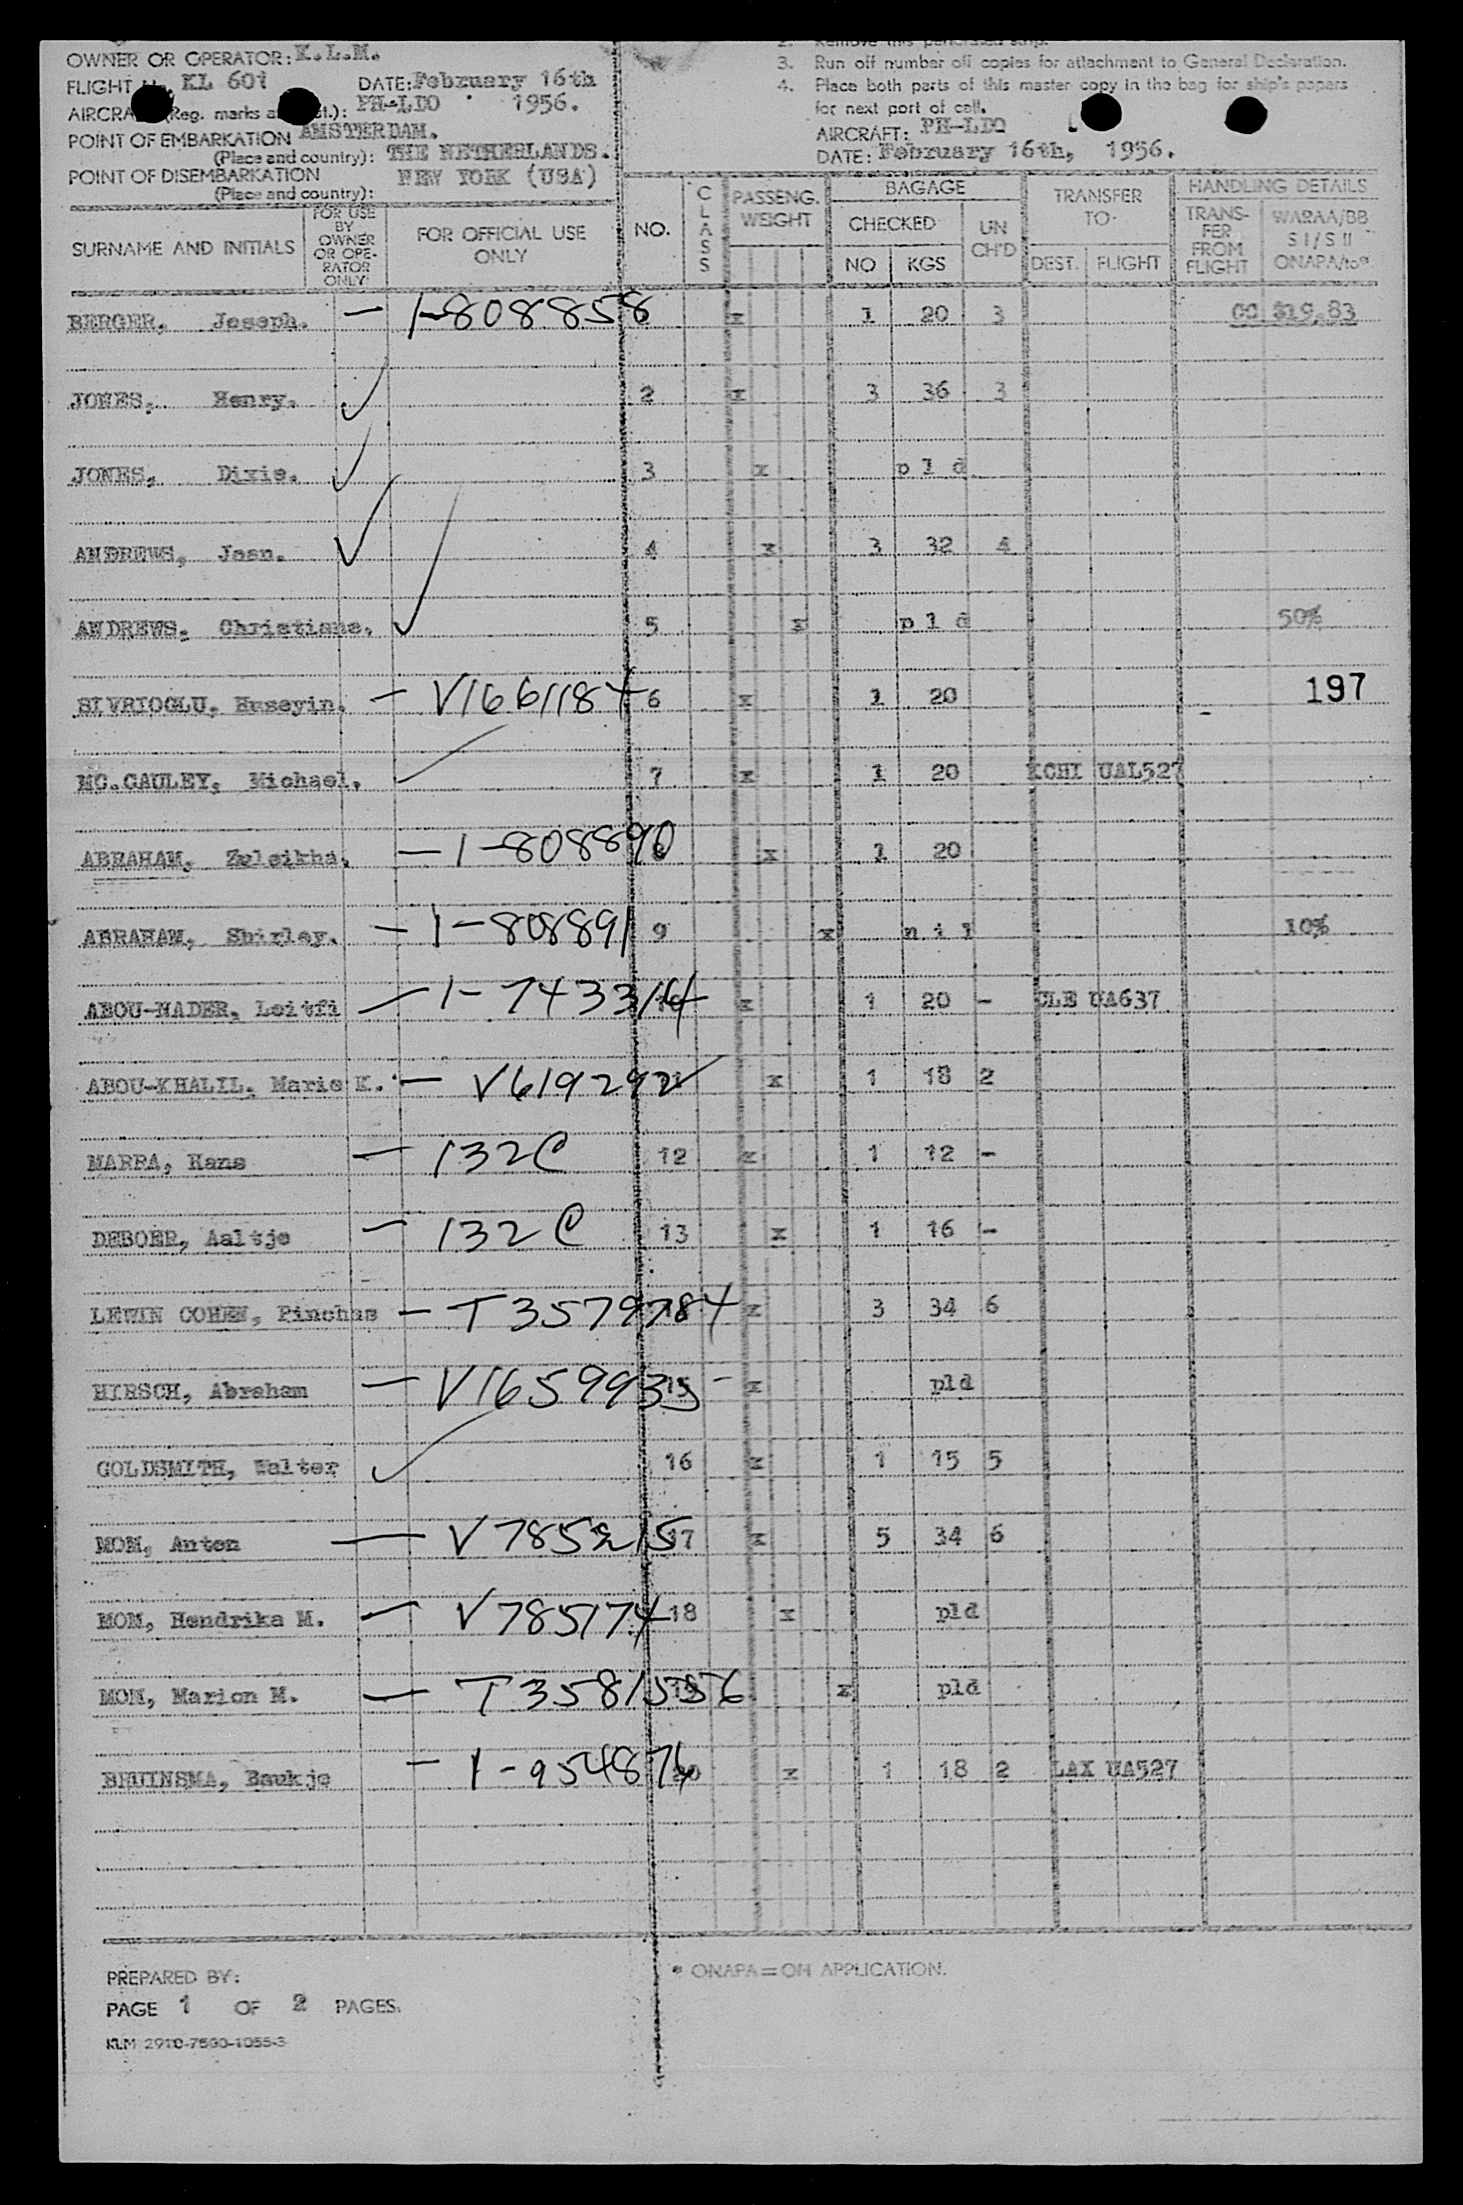 OWNER OR OPERATOR: K.L.M.
FLIGHT KL 601 DATE: February 16th
PH-LDO 1956.
POINT OF EMBARKATION AMSTERDAM.
(Place and country): THE NETHERLANDS.
POINT OF DISEMBARKATION NEW YORK (USA)
(Place and country):
3. Run off number off copies for attachment to General Declaration.
4. Place both parts of this master copy in the bag for ship's papers
for next port of call.
AIRCRAFT: PH-LDO
DATE: February 16th, 1956.
SURNAME AND INITIALS FOR USE BY OWNER OR OPE-RATOR ONLY FOR OFFICIAL USE ONLY NO. CLASS PASSENG. WEIGHT BAGAGE CHECKED NO KGS UN CH'D TRANSFER TO DEST. FLIGHT HANDLING DETAILS TRANS-FER FROM FLIGHT WARAA/BB S I / S II ONAPA/to*
BERGER, Joseph. — 1-808858 x 1 20 3 CC $19.83
JONES, Henry. ✓ 2 x 3 36 3
JONES, Dixie. ✓ 3 x pld
ANDREWS, Jean. ✓ 4 x 3 32 4
ANDREWS. Christiane. ✓ 5 x pld 50%
SIVRIOGLU, Huseyin. — V1661184 6 x 1 20 197
MC.GAULEY, Michael. ✓ 7 x 1 20 KCHI UAL527
ABRAHAM, Zuleikha. — 1-808890 8 x 1 20
ABRAHAM, Shirley. — 1-808891 9 x nil 10%
ABOU-NADER, Loitfi — 1-743314 10 x 1 20 - CLE UA637
ABOU-KHALIL, Marie K. — V619292 x 1 18 2
MARRA, Hans — 132C 12 x 1 12 -
DEBOER, Aaltje — 132C 13 x 1 16 -
LEWIN COHEN, Pinchas — T3579784 x 3 34 6
HIRSCH, Abraham — V1659935 15 - x pld
GOLDSMITH, Walter ✓ 16 x 1 15 5
MOM, Anton — V785215 17 x 5 34 6
MOM, Hendrika M. — V785174 18 x pld
MOM, Marion M. — T3581556 x pld
BRUINSMA, Baukje — 1-954874 20 x 1 18 2 LAX UA527
PREPARED BY:
* ONAPA=ON APPLICATION.
PAGE 1 OF 2 PAGES.